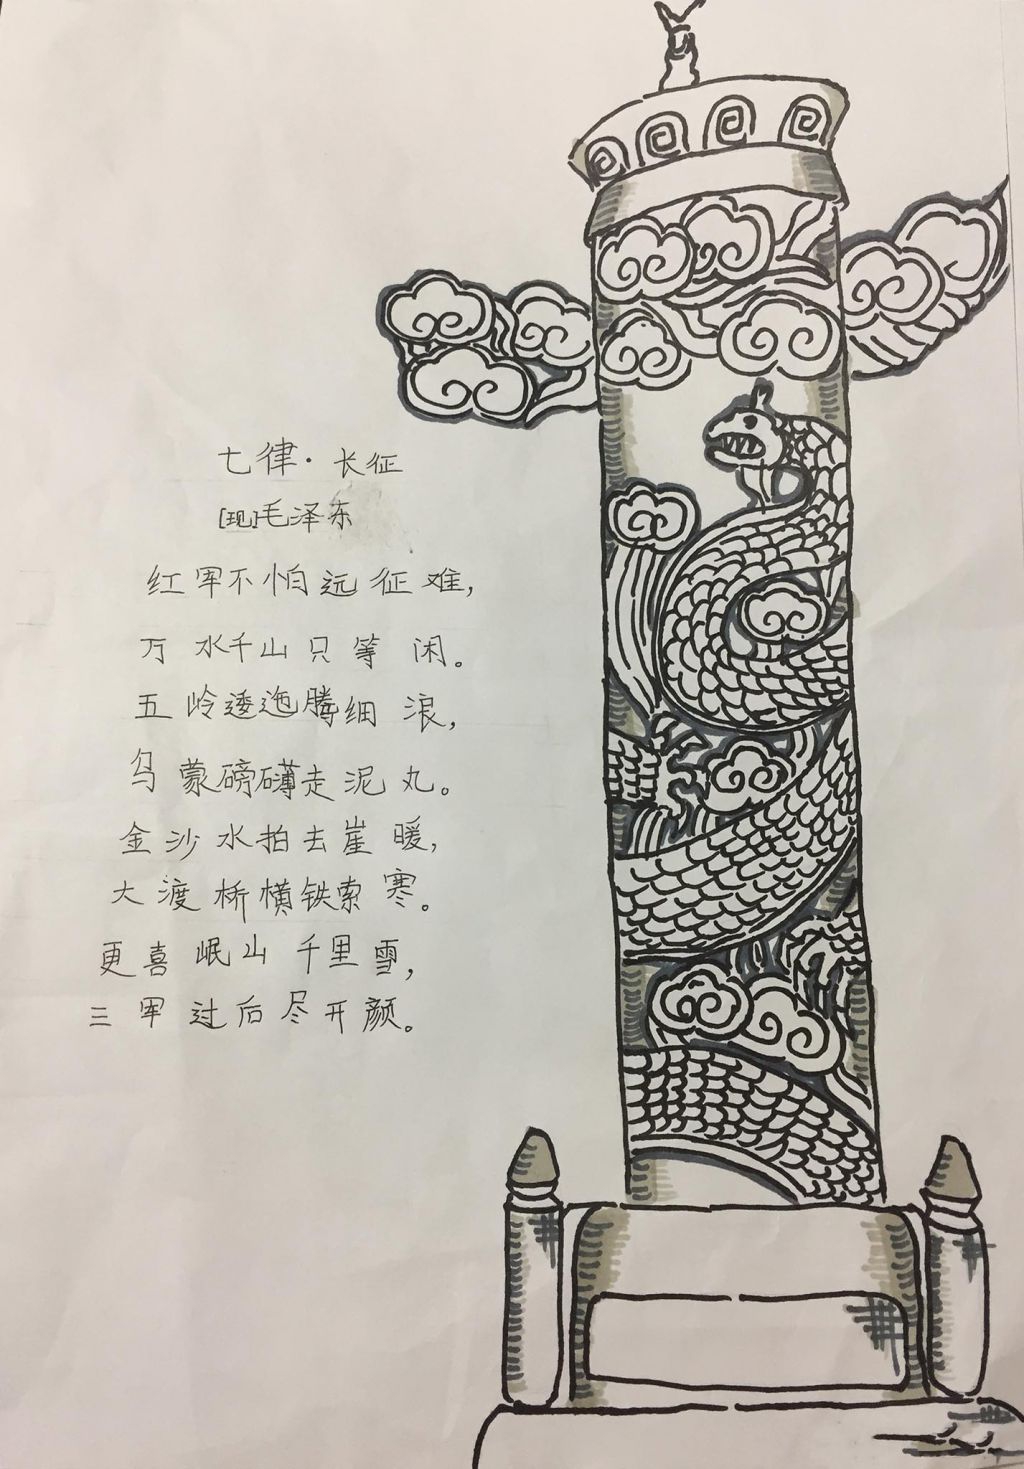 七律·长征
[现]毛泽东
红军不怕远征难，
万水千山只等闲。
五岭逶迤腾细浪，
乌蒙磅礴走泥丸。
金沙水拍去崖暖，
大渡桥横铁索寒。
更喜岷山千里雪，
三军过后尽开颜。